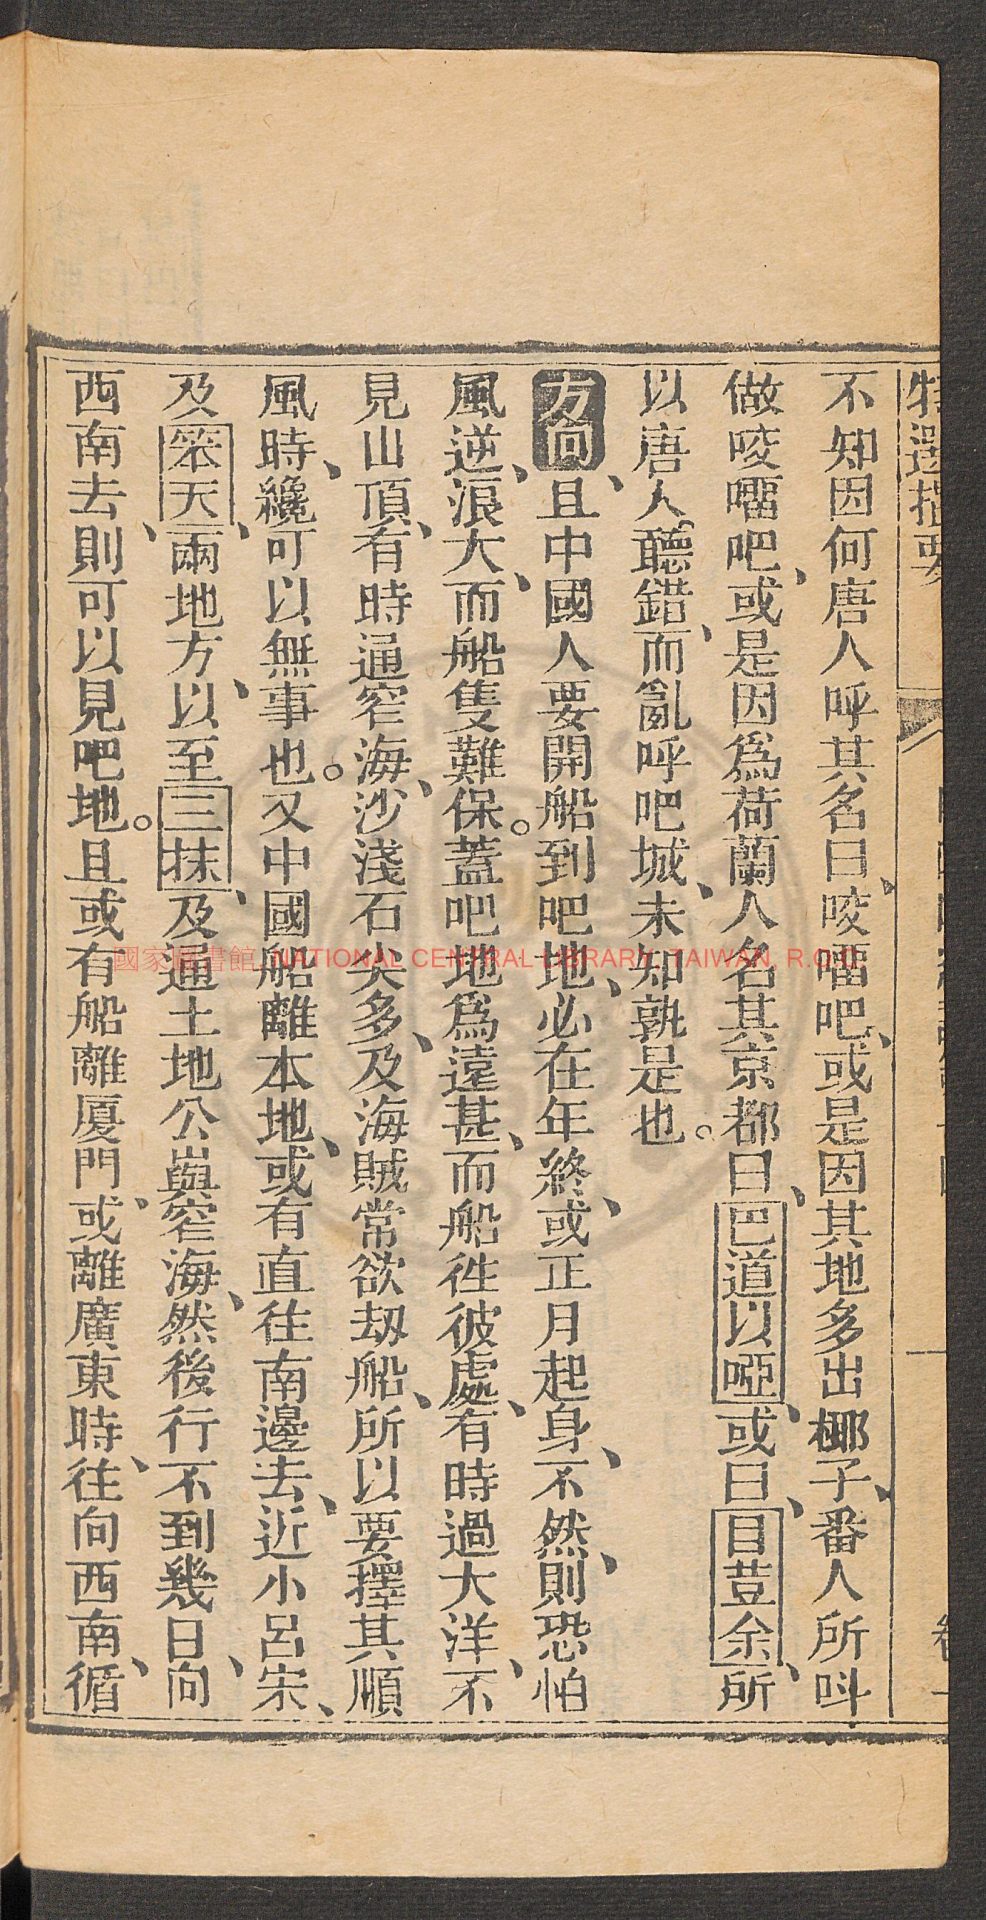 特選撮要
卷一
不知因何唐人呼其名曰、咬𠺕吧、或是因其地多出椰子、番人所呌
做咬𠺕吧、或是因爲荷蘭人名其京都曰、巴道以啞、或曰、目荳佘、所
以唐人聽錯、而亂呼吧城、未知孰是也。
方向、且中國人要開船到吧地、必在年終、或正月起身、不然、則恐怕
風逆、浪大、而船隻難保。蓋吧地爲遠甚、而船徃彼處、有時過大洋、不
見山頂、有時通窄海、沙淺石尖多、及海賊常欲刼船、所以要擇其順
風時、纔可以無事也。又中國船離本地、或有直往南邊去、近小呂宋、
及笨天、兩地方、以至三抹、及通土地公嶼窄海、然後行不到幾日、向
西南去、則可以見吧地。且或有船離厦門、或離廣東時、往向西南、循
國家圖書館 NATIONAL CENTRAL LIBRARY, TAIWAN, R.O.C